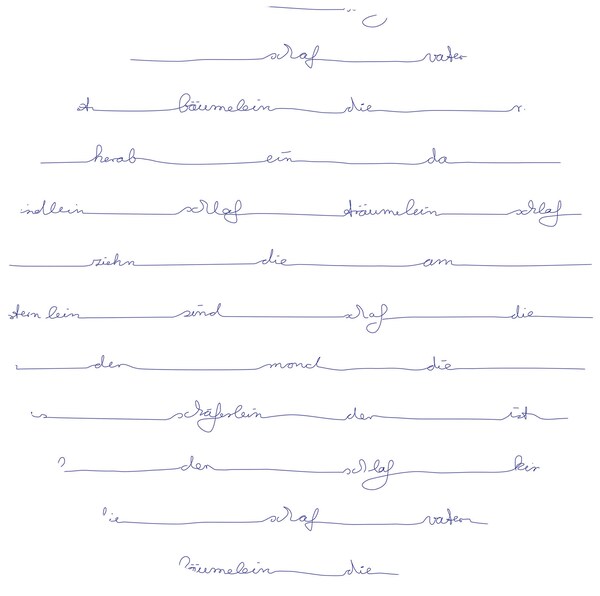 schaf vater
bäumelein die
herab ein da
schlaf träumelein schlaf
ziehn die am
sternlein sind schaf die
der mond die
schäferlein der ist
der schlaf
schaf vater
die